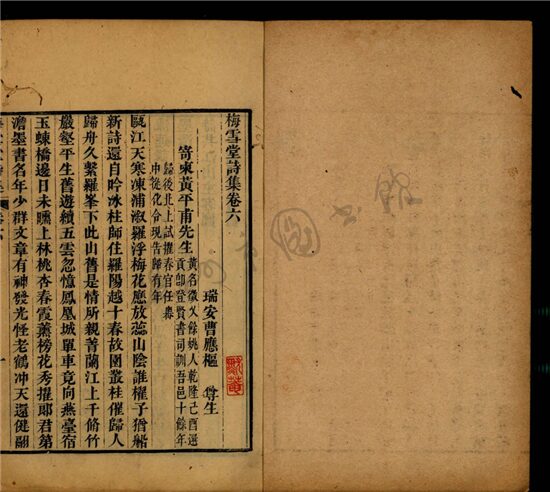 梅雪堂詩集卷六
瑞安曹應樞 尊生
寄柬黃平甫先生
黃名徵乂餘姚人乾隆己酉選
貢卽登賢書司訓吾邑十餘年
歸後北上試擢春官任
申從化令現告歸有年
甌江天寒凍浦溆羅浮梅花應放蕊山陰誰櫂子猶船
新詩還自吟冰柱師住羅陽越十春故園叢桂催歸人
歸舟久繫羅峯下此山舊是情所親菁蘭江上千條竹
巖壑平生舊遊續五雲忽憶鳳凰城單車竟向燕臺宿
玉蝀橋邊日未曛上林桃杏春霞薰榜花秀擢郎君第
澹墨書名年少羣文章有神發光怪老鶴沖天還健翮